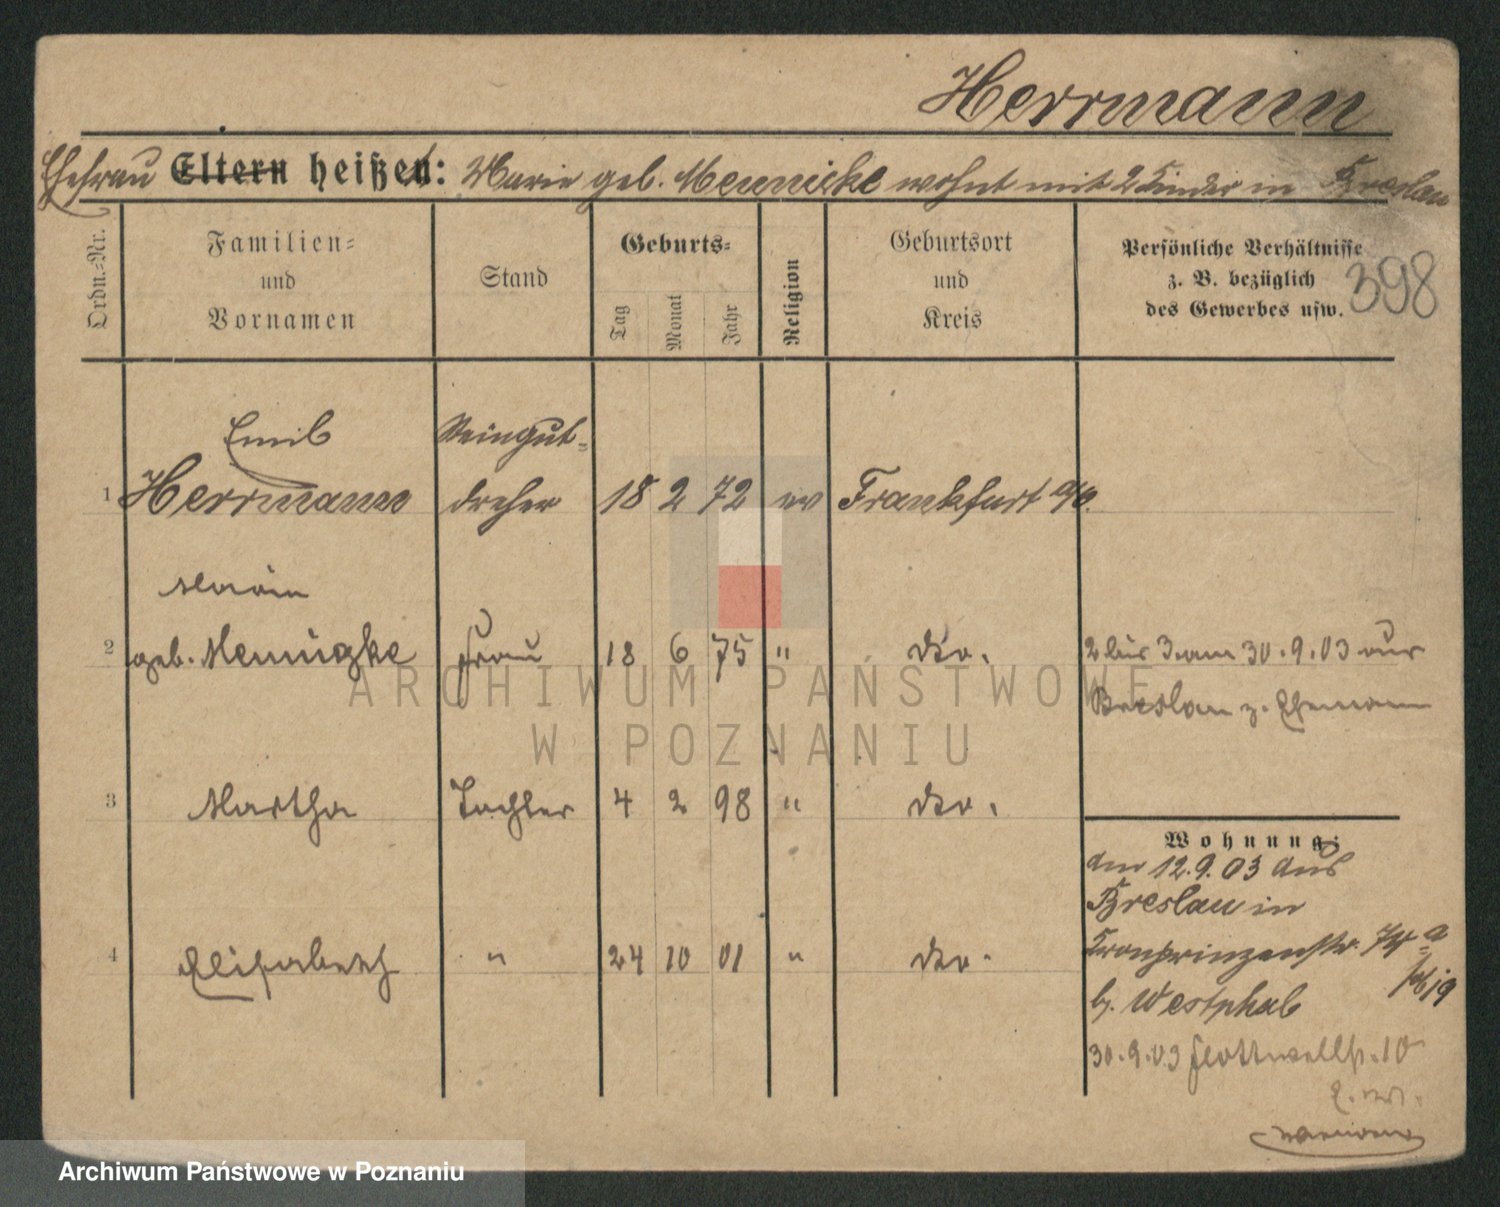 Herrmann
Ehefrau Eltern heißen: Marie geb. Mennicke wohnt mit 2 Kinder in Breslau
Ordn.-Nr.
Familien-
und
Vornamen
Stand
Geburts-
Tag
Monat
Jahr
Religion
Geburtsort
und
Kreis
Persönliche Verhältnisse
z. B. bezüglich
des Gewerbes usw.
398
Emil
Steingut-
1 Herrmann dreher 18 2 72 ev Frankfurt a/O.
Marie
2 geb. Frau 18 6 75 " Dto. 2 bis 3 am 30.9.03 aus
Breslau z. Ehemann
3 Martha Tochter 4 2 98 " Dto.
Wohnung:
am 12.9.03 aus
Breslau in
4 Elisabeth " 24 10 01 " Dto. Kronprinzenstr. 74 a
b. Westphal
30.9.03 Flottwellstr. 10
ARCHIWUM PAŃSTWOWE
W POZNANIU
Archiwum Państwowe w Poznaniu